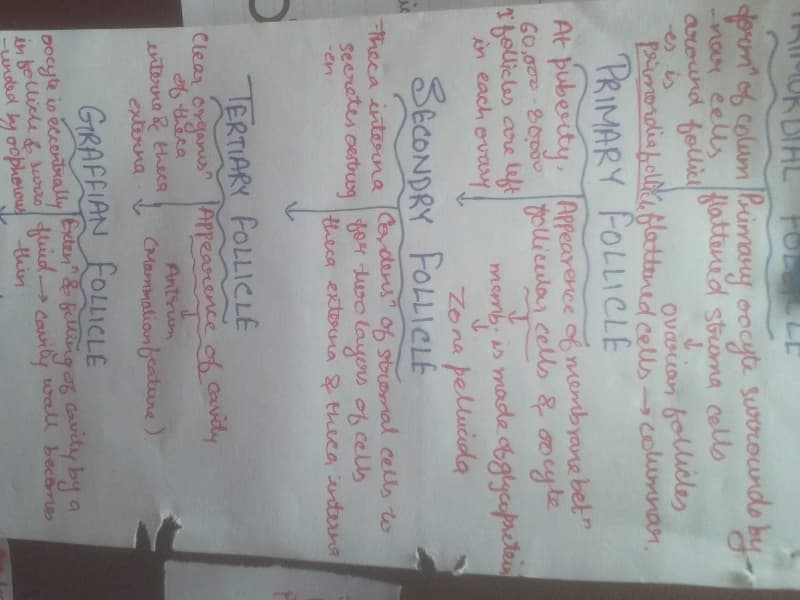 PRIMORDIAL FOLLICLE
formⁿ of colum
-nar cells
around follicl
-es is
primordia follicl
Primary oocyte surrounds by
flattened stroma cells
↓
ovarian follicles
flattened cells → columnar.
PRIMARY FOLLICLE
At puberty,
60,000-80,000
1° follicles are left
in each ovary
Appearence of membrane betⁿ
follicular cells & oocyte
↓
memb. is made of glycoprotein
↓
Zona pellucida
SECONDRY FOLLICLE
-theca interna
secretes oestrog
-en
Condensⁿ of stromal cells to
for two layers of cells
theca externa & theca interna
TERTIARY FOLLICLE
Clear organisⁿ
of theca
interna & theca
externa.
Appearence of cavity
↓
Antrum
(Mammalian feature)
GRAFFIAN FOLLICLE
oocyte is eccentrically
in follicle & surro
-unded by oophorous
Extenⁿ & filling of cavity by a
fluid → cavity wall becomes
thin